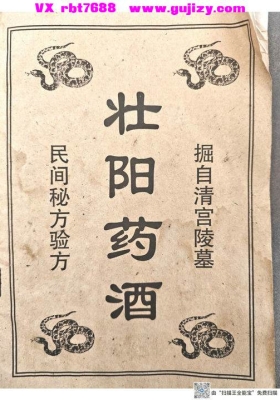 VX rbt7688 www.gujizy.com
掘自清宫陵墓
壮阳药酒
民间秘方验方
由"扫描王全能宝"免费扫描